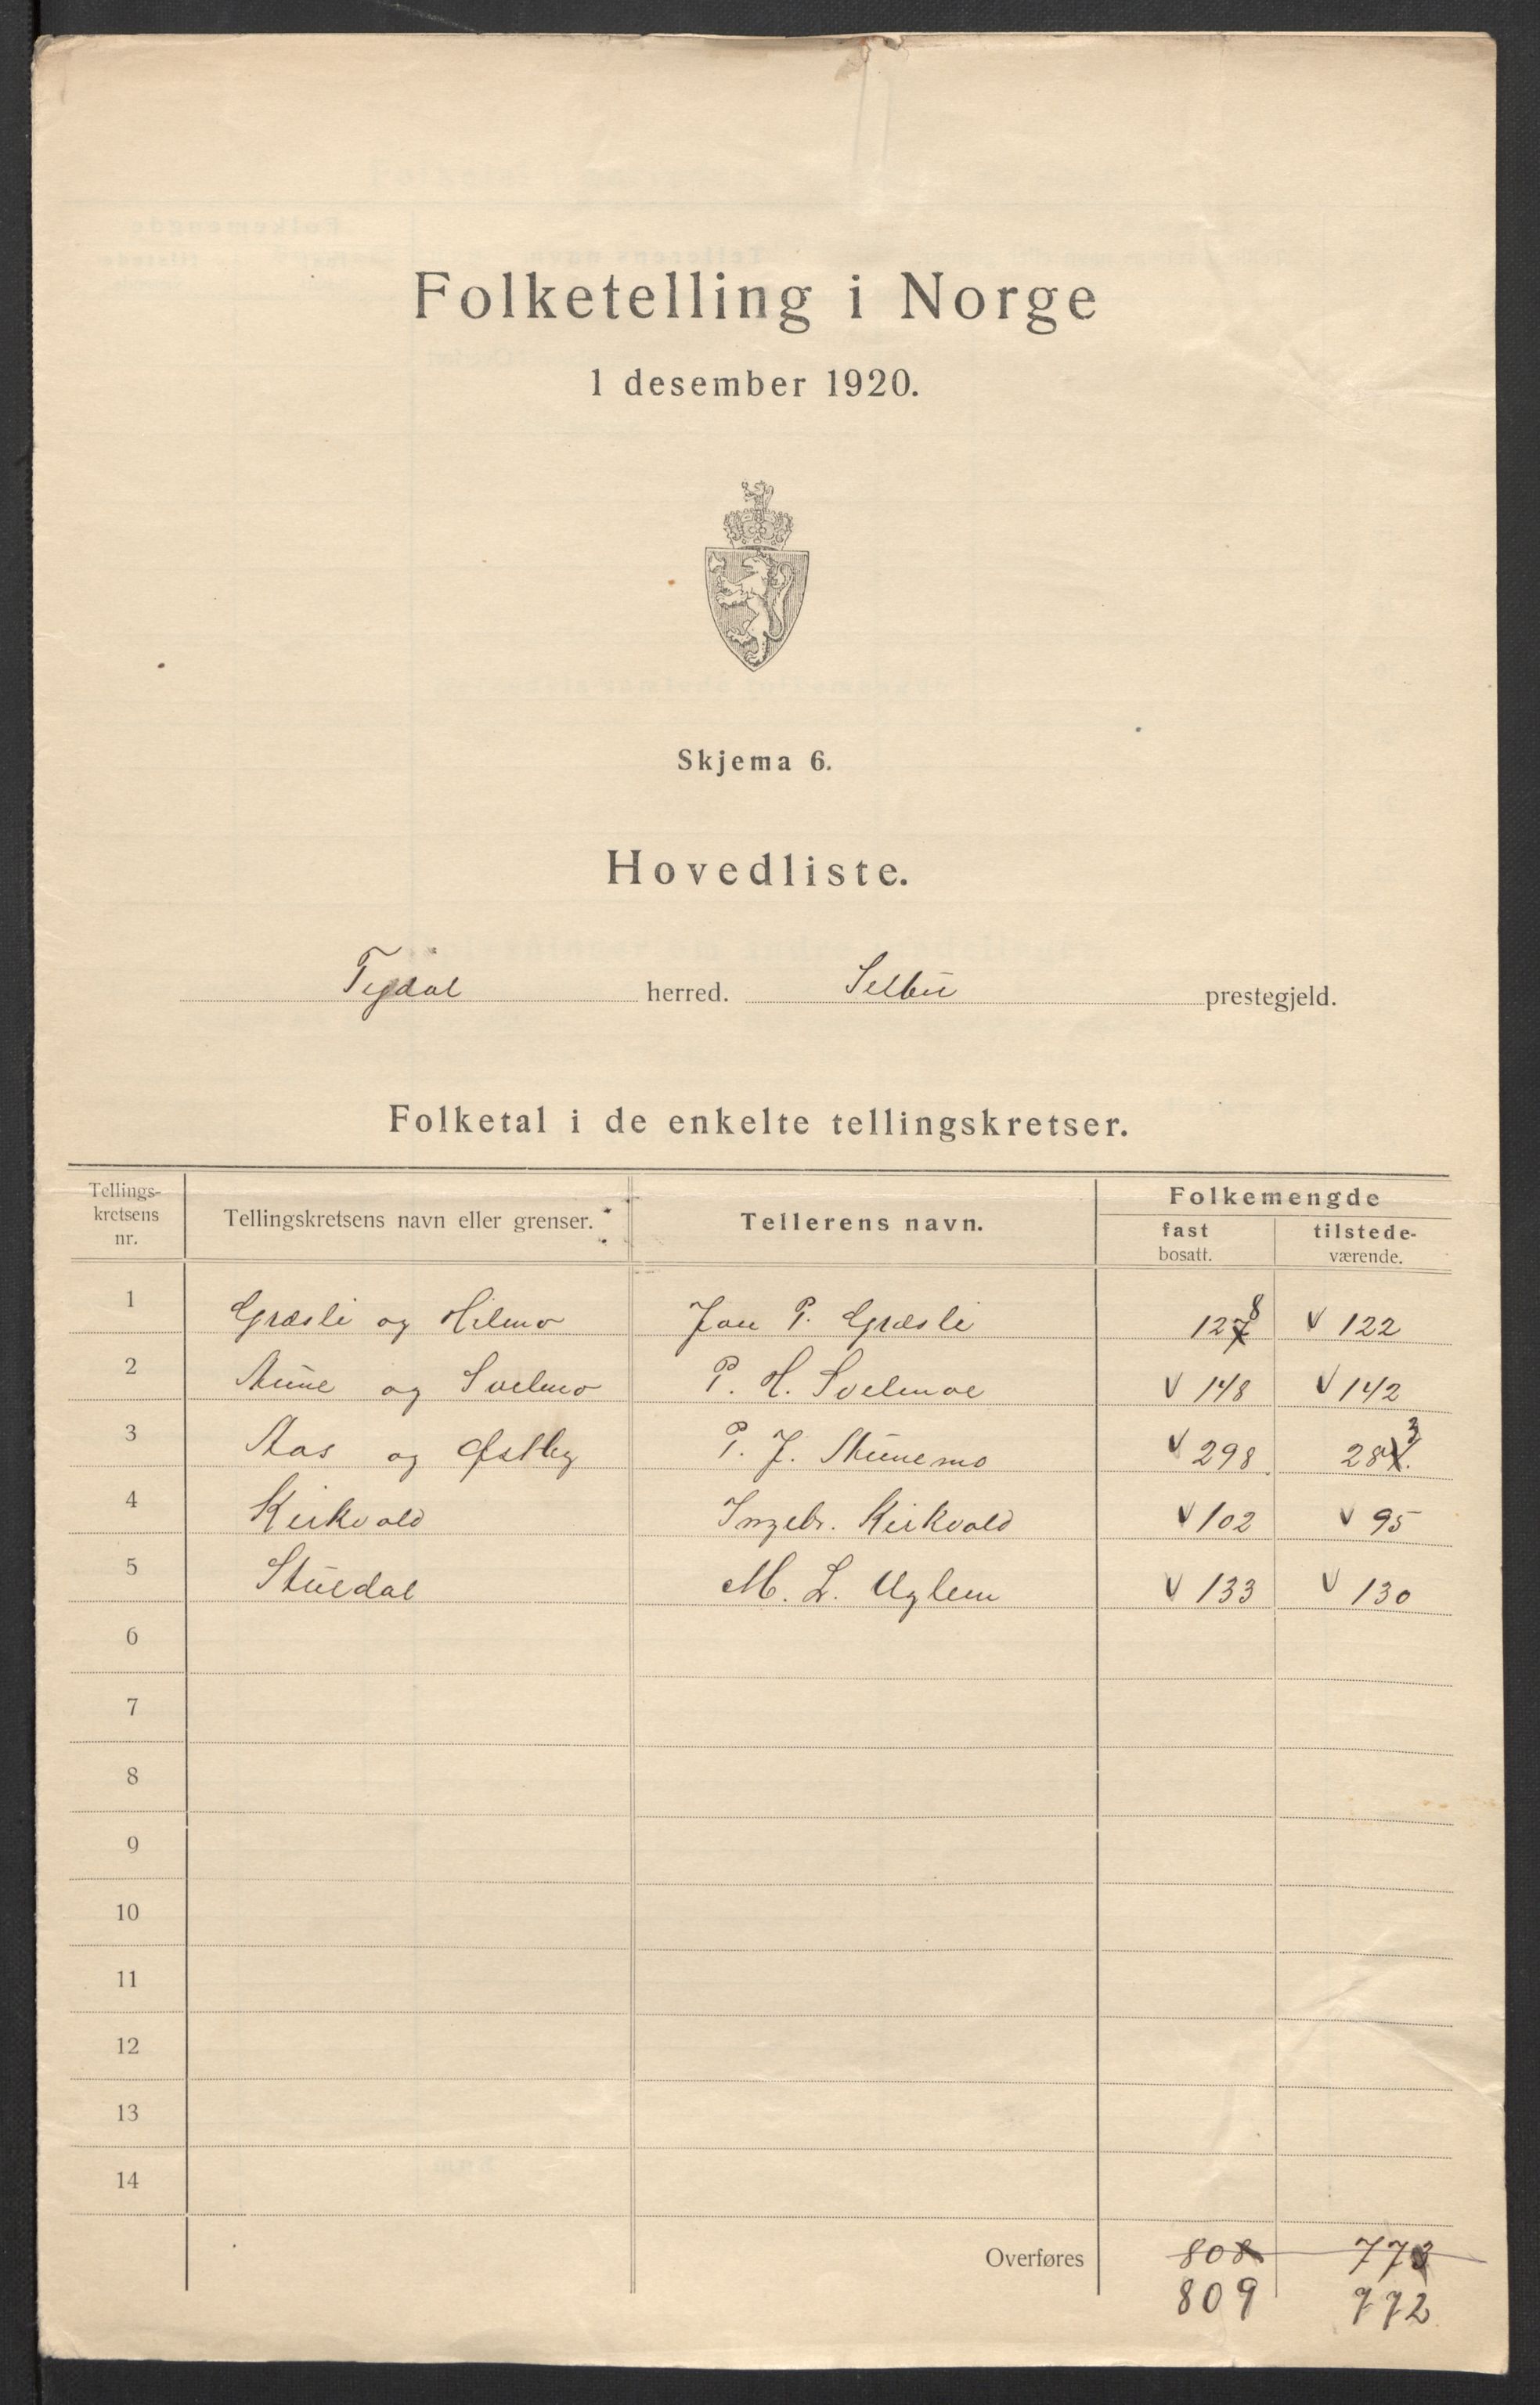 Folketelling i Norge
1 desember 1920.
Skjema 6.
Hovedliste.
Tydal herred. Selbu prestegjeld.
Folketal i de enkelte tellingskretser.
Tellings-
kretsens
nr.
Tellingskretsens navn eller grenser.
Tellerens navn.
Folkemengde
fast
bosatt.
tilstede-
værende.
1 Græsli og Hilmo Jon P. Græsli 127 8 V 122
2 Aune og Svelmo P. H. Svelmoe V 148 V 142
3 Aas og Østby P. J. Aunemo V 298 284. 3
4 Kirkvold Ingebr. Kirkvold V 102 V 95
5 Stuedal M. L. Uglem V 133 V 130
6
7
8
9
10
11
12
13
14
Overføres 808 773
809 772